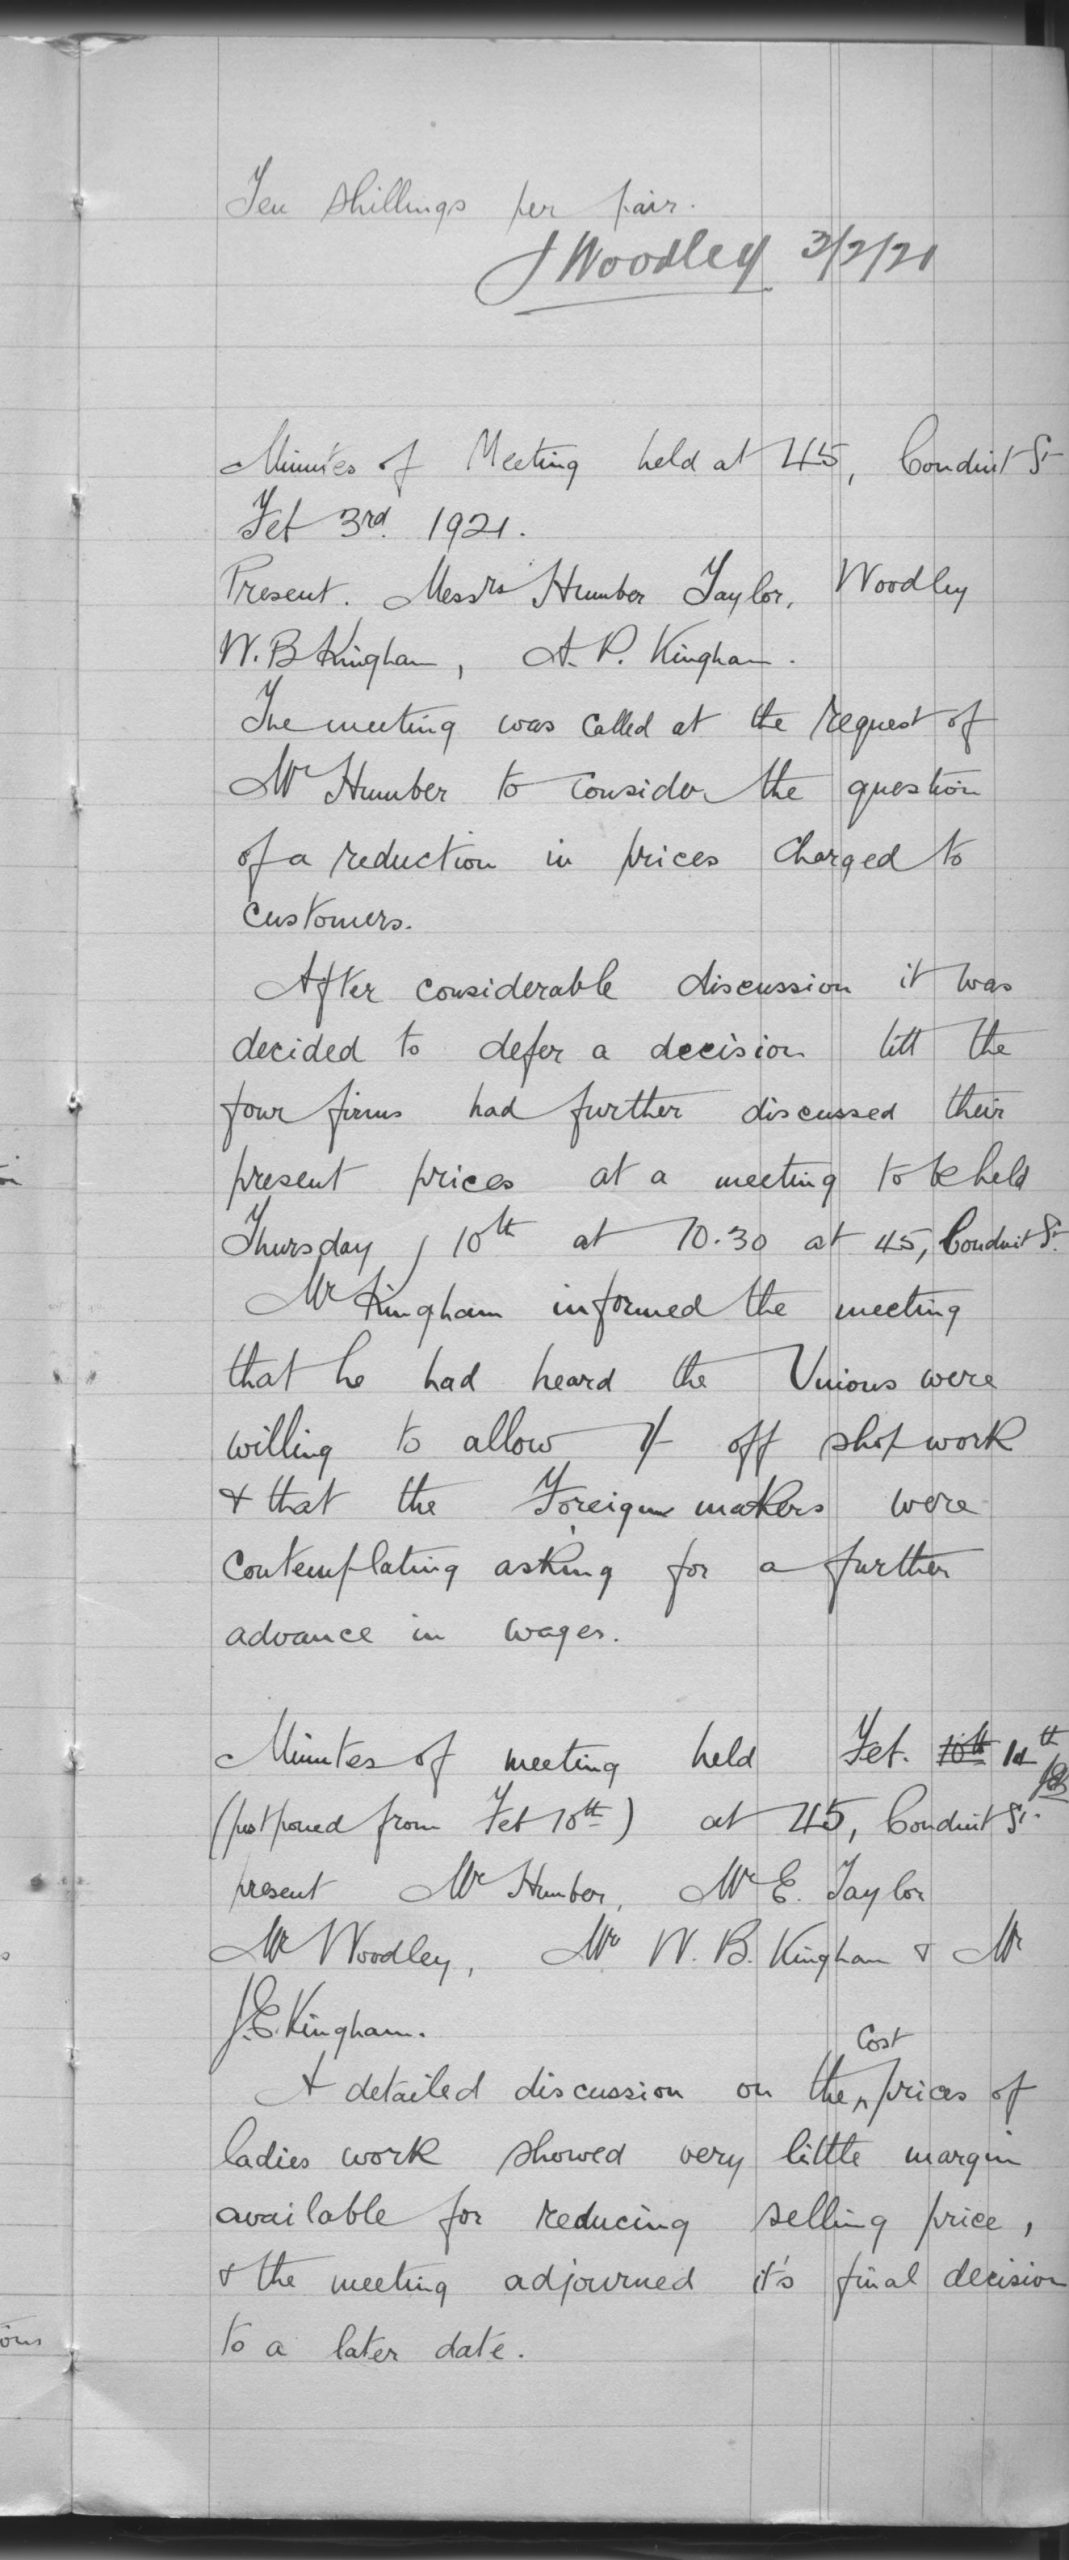 Ten shillings per pair.
J Woodley 3/2/21
Minutes of Meeting held at 45, Conduit St
Feb 3rd. 1921.
Present. Messrs Humber Taylor, Woodley
W. B Kingham, A. P. Kingham.
The meeting was called at the request of
Mr Humber to consider the question
of a reduction in prices charged to
customers.
After considerable discussion it was
decided to defer a decision till the
four firms had further discussed their
present prices at a meeting to be held
Thursday, 10th at 10.30 at 45, Conduit St.
Mr Kingham informed the meeting
that he had heard the Unions were
willing to allow 1/- off shop work
& that the Foreign makers were
contemplating asking for a further
advance in wages.
Minutes of meeting held Feb. 10th th
(postponed from Feb 10th) at 45, Conduit St.
present Mr Humber, Mr E. Taylor
Mr Woodley, Mr W. B. Kingham & Mr
J. E. Kingham.
A detailed discussion on the cost prices of
ladies work showed very little margin
available for reducing selling price,
& the meeting adjourned it's final decision
to a later date.